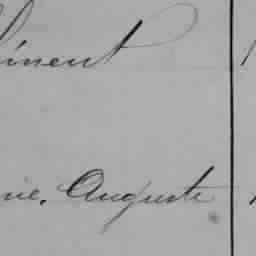 iment
nie. Auguste